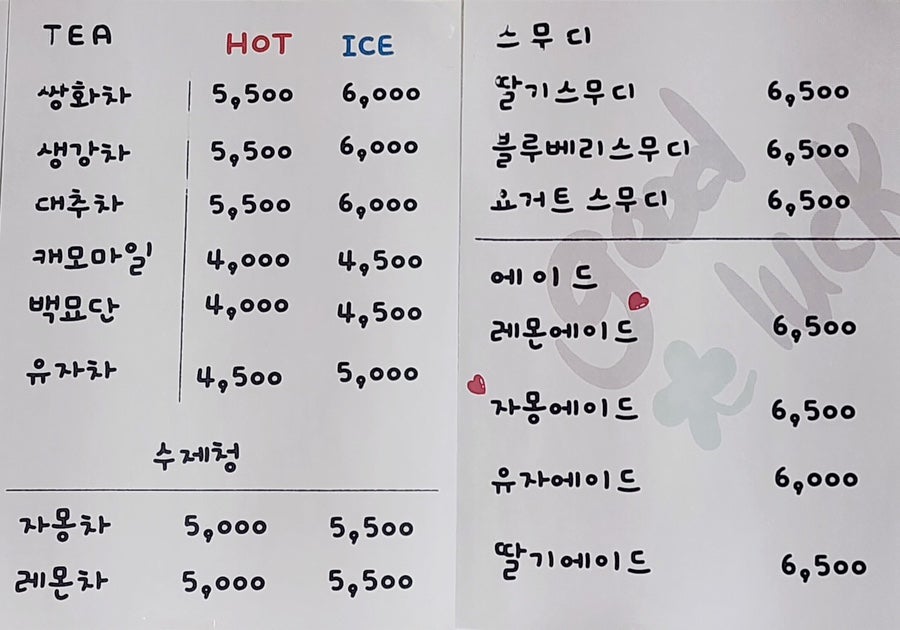 TEA HOT ICE
쌍화차 5,500 6,000
생강차 5,500 6,000
대추차 5,500 6,000
캐모마일 4,000 4,500
백묘단 4,000 4,500
유자차 4,500 5,000
수제청
자몽차 5,000 5,500
레몬차 5,000 5,500
스무디
딸기스무디 6,500
블루베리스무디 6,500
요거트 스무디 6,500
에이드
레몬에이드 6,500
자몽에이드 6,500
유자에이드 6,000
딸기에이드 6,500
Good
luck